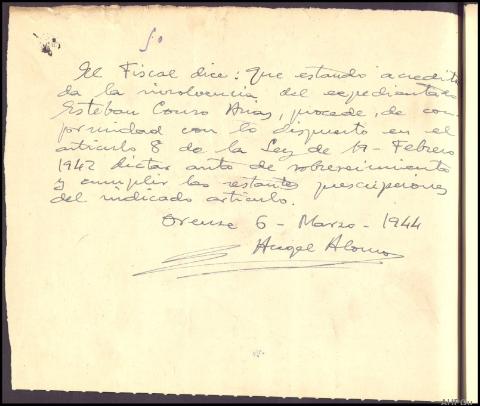 El Fiscal dice: que estando acredita
da la insolvencia del expedientado
Esteban Couso Arias, procede, de con
formidad con lo dispuesto en el
articulo 8 de la Ley de 19 - Febrero
1942 dictar auto de sobreseimiento
y cumplir las restantes prescripciones
del indicado articulo.
Orense 6 - Marzo - 1944
Angel Alonso